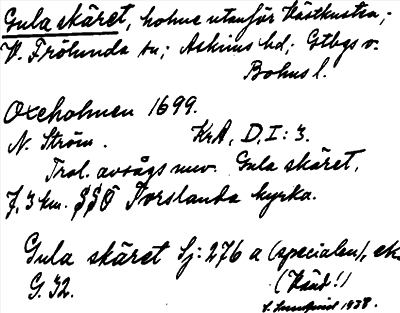 Gula skäret, holme utanför Västkusten;
V. Frölunda sn; Askims hd; Gtbgs o.
Bohus l.
Oxeholmen 1699.
N. Ström. KrA, D, I: 3.
Trol. avsågs nuv. Gula skäret,
7,3 km. SSÖ Torslanda kyrka.
Gula skäret Sj: 276 a (specialen), ek.
G. 32. (Känd!)
1938.